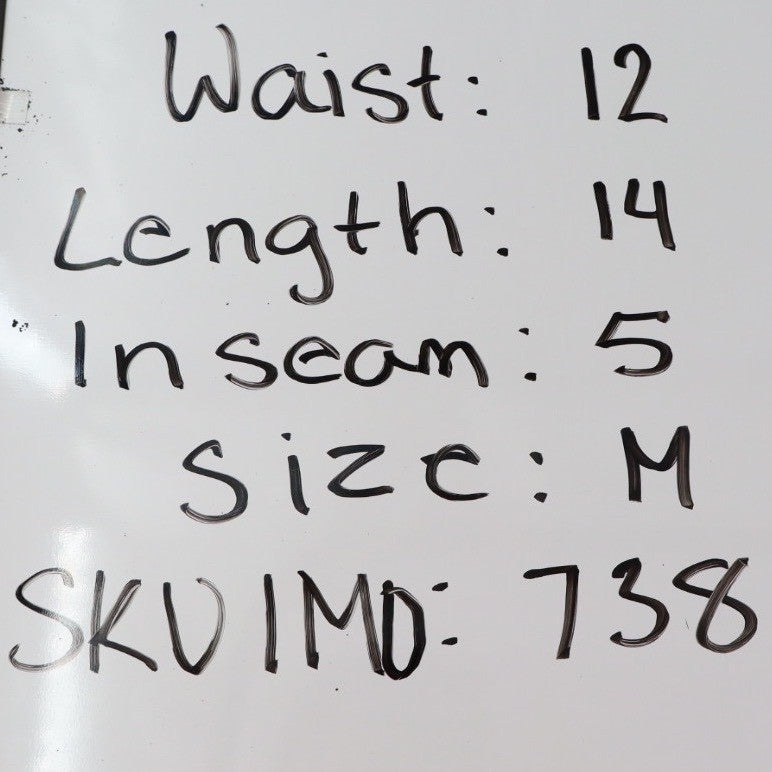 Waist: 12
Length: 14
Inseam: 5
Size: M
SKUIMD: 738